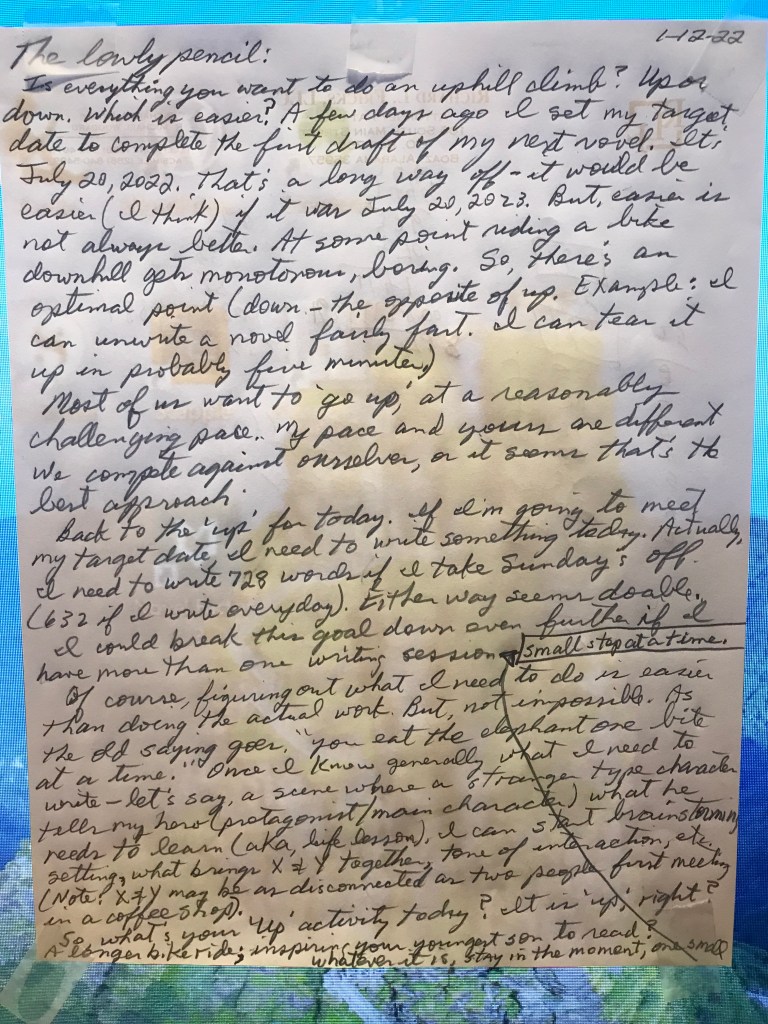 1-12-22
The lowly pencil:
Is everything you want to do an uphill climb? Up or
down. Which is easier? A few days ago I set my target
date to complete the first draft of my next novel. It's
July 20, 2022. That's a long way off - it would be
easier (I think) if it was July 20, 2023. But, easier is
not always better. At some point riding a bike
downhill gets monotonous, boring. So, there's an
optimal point (down - the opposite of up. Example: I
can unwrite a novel fairly fast. I can tear it
up in probably five minutes.)
Most of us want to 'go up,' at a reasonably
challenging pace.. My pace and yours are different
We compete against ourselves, or it seems that's the
best approach.
Back to the 'up' for today. If I'm going to meet
my target date, I need to write something today. Actually,
I need to write 728 words if I take Sunday's off.
(632 if I write everyday). Either way seems doable.
I could break this goal down even further if I
have more than one writing session
small step at a time.
Of course, figuring out what I need to do is easier
than doing the actual work. But, not impossible. As
the old saying goes, "you eat the elephant one bite
at a time." Once I know generally what I need to
write - let's say, a scene where a stranger type character
tells my hero (protagonist/main character) what he
needs to learn (aka, life lesson), I can start brainstorming
setting, what brings X & Y together, tone of interaction, etc.
(Note: X & Y may be as disconnected as two people first meeting
in a coffee shop).
So, what's your 'up' activity today? It is 'up,' right?
A longer bike ride; inspiring your youngest son to read?
whatever it is, stay in the moment, one small